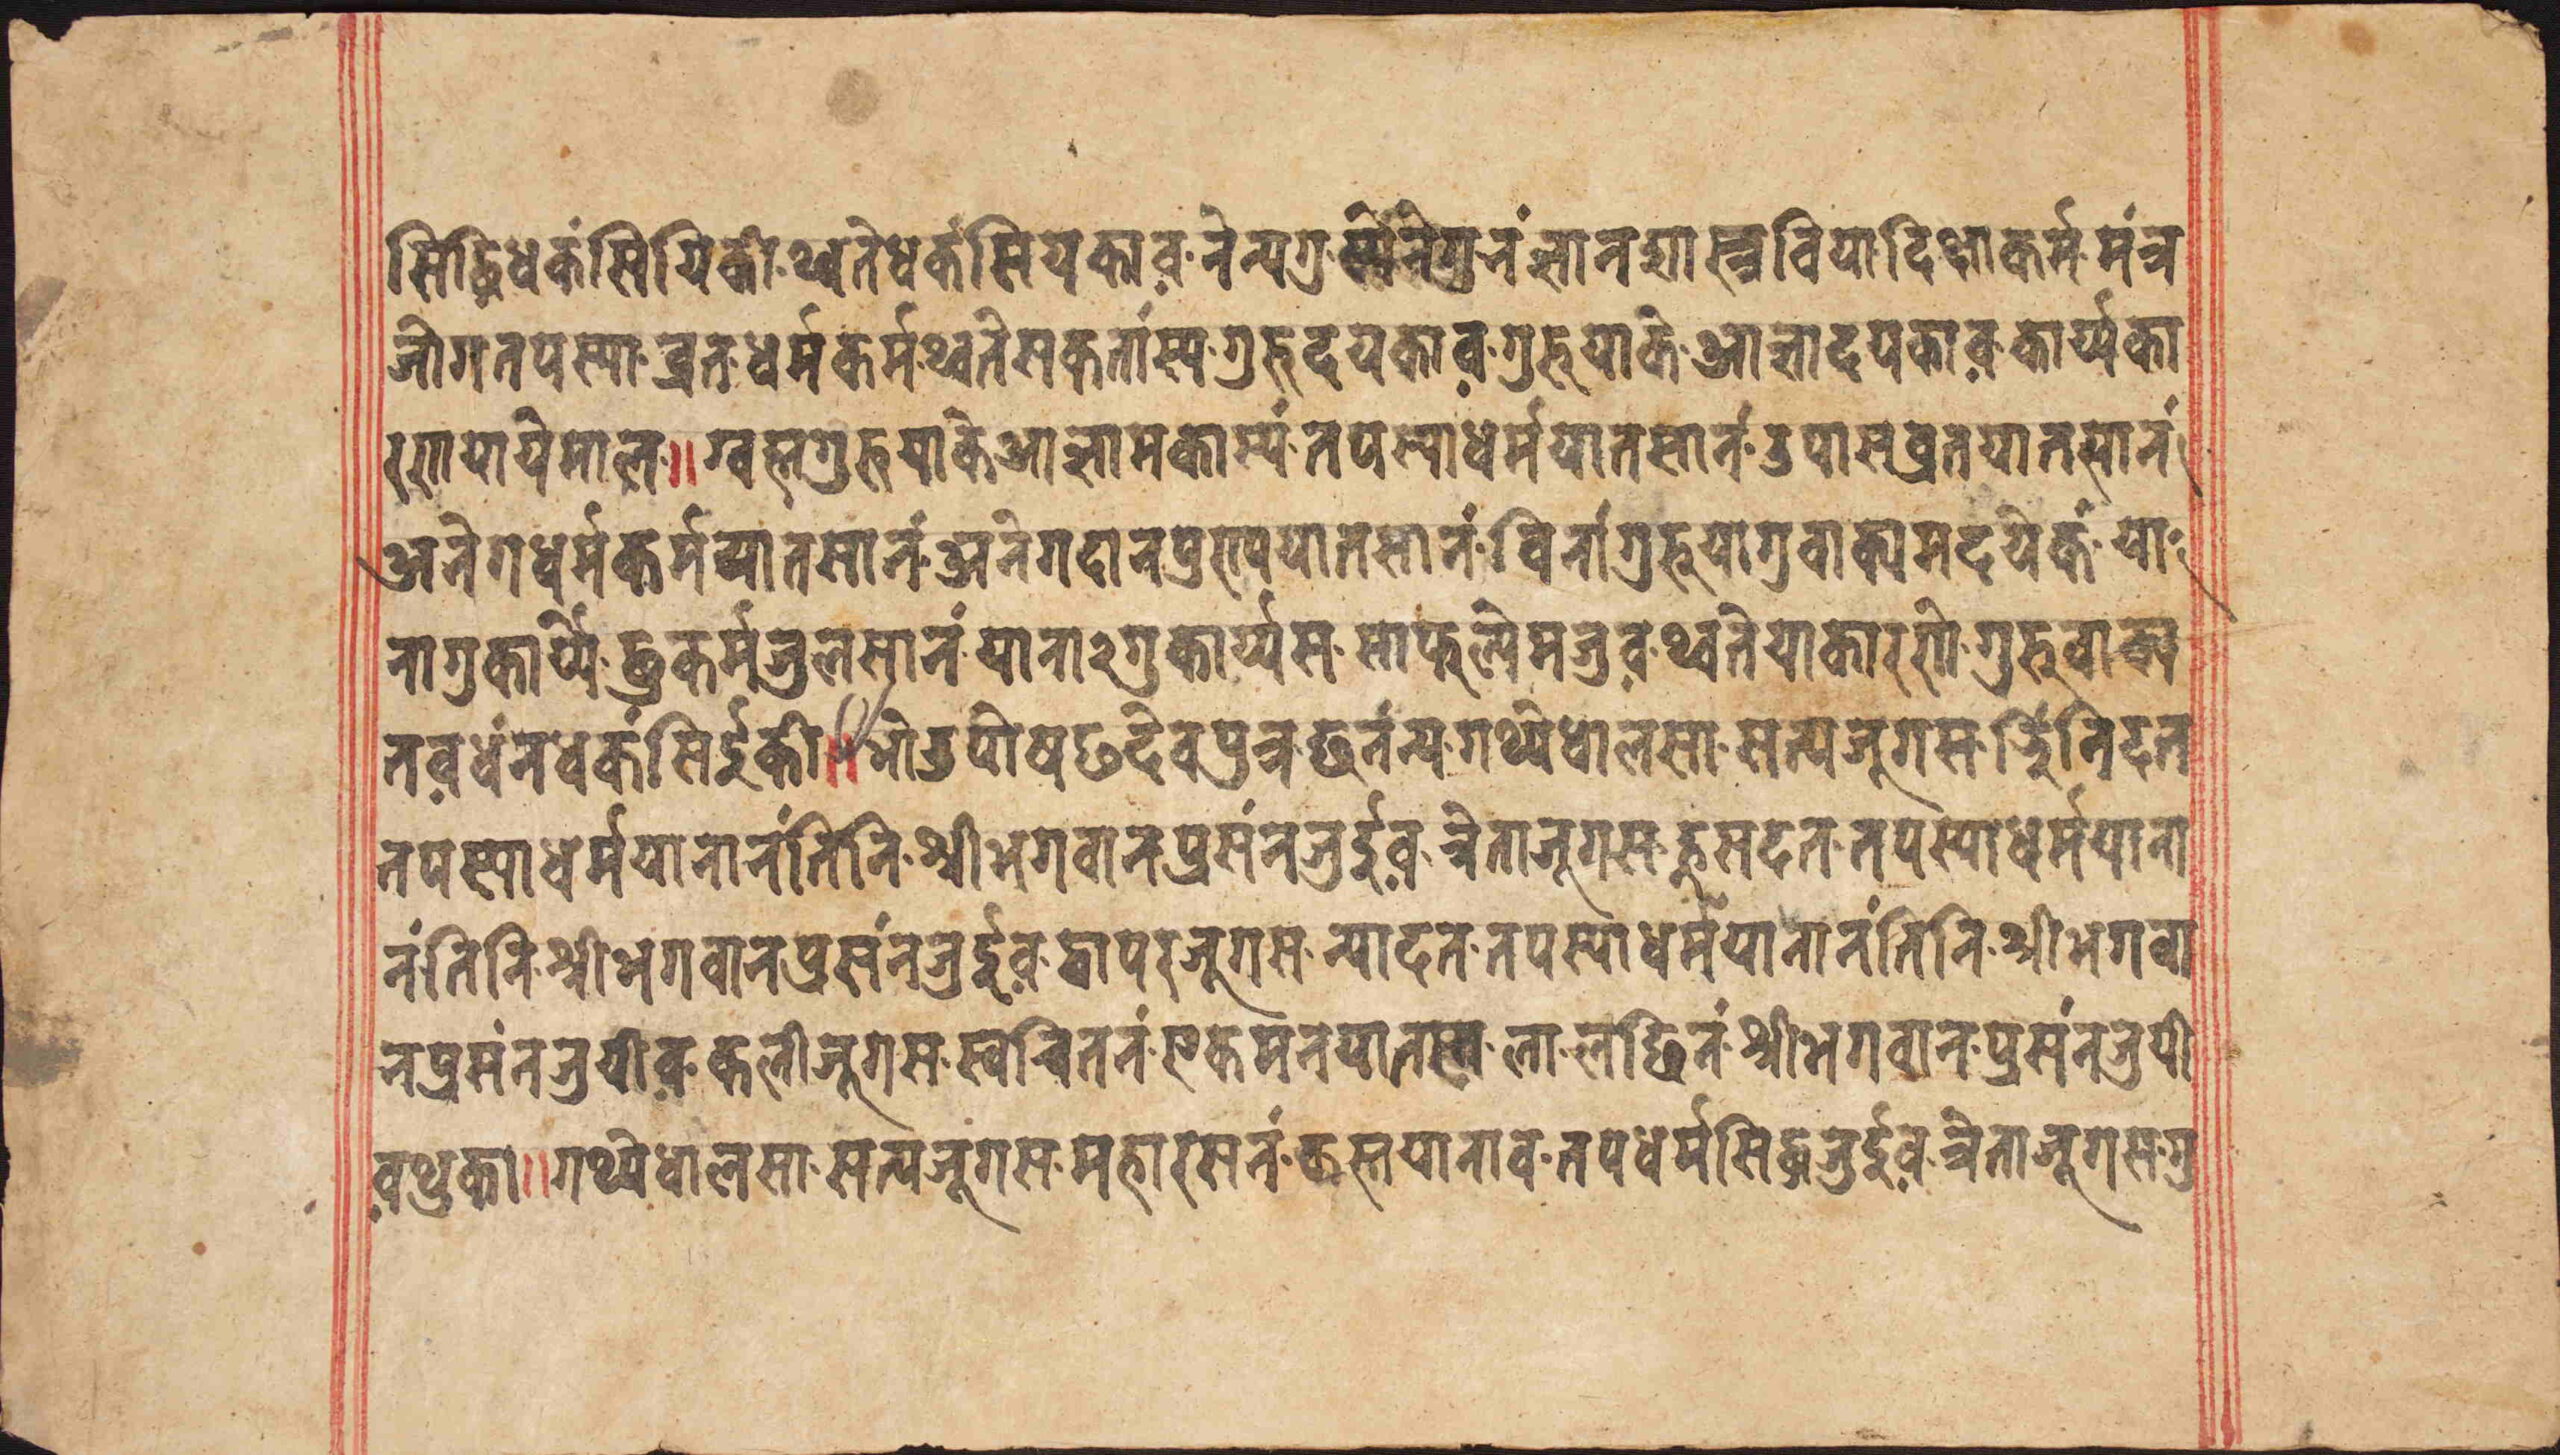 सिद्धिधकंसियिकी·थ्वतेधकंसियकाव़·नेन्यगु·नेगु·नं·ज्ञानशास्त्रविया·दिक्षाकर्म·मंत्र
जोगतपस्या·व्रत·धर्मकर्म·थ्वतेसकतांस्य·गुरूदयकाव़·गुरूयाके·आज्ञादयकाव़·कार्य्यका
रणयायेमाल॥ग्वह्मगुरूयाकेआज्ञामकास्यं·तपस्याधर्मयातसानं·उपासव्रतयातसानं
अनेगधर्मकर्मयातसानं·अनेगदानपुण्ययातसानं·विनांगुरूयागुवाक्यमदयेकं·या
नागुकार्य्ये·छुकर्मजुलसानं·याना२गुकार्य्यस·साफल्येमजुव़·थ्वतेयाकारणे·गुरूवाक्य
तव़धंनधकंसिईकी॥भोउपोषछदेवपुत्र·छुतंन्य·गथ्येधालसा·सत्यजूगस·झिंनिदत
तपस्याधर्मयानानंतिनि·श्रीभगवानप्रसंनजुईव़·त्रेताजूगस·हूसदत·तपस्याधर्मयाना
नंतिनि·श्रीभगवानप्रसंनजुईव़·द्वापरजूगस·न्यादत·तपस्याधर्मयानानंतिनि·श्रीभगवा
नप्रसंनजुयीव़·कलीजूगस·स्वचितनं·एकमनयातसा·ला·लछिनं·श्रीभगवान·प्रसंनजुयी
व़थुका॥गथ्येधालसा·सत्यजूगस·महारसनं·कस्तयानाव·तपधर्मसिद्धजुईव़·त्रेताजूगस·गु